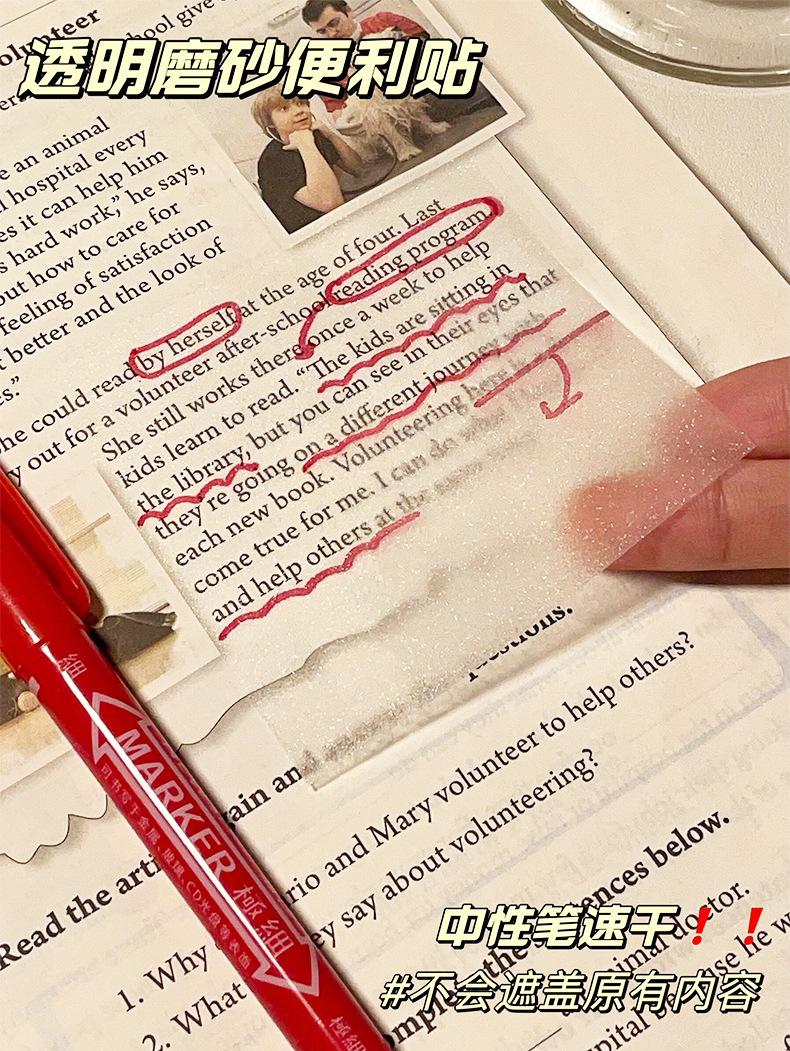 olunteer
chool give
透明磨砂便利贴
e an animal
l hospital every
es it can help him
s hard work," he says,
out how to care for
feeling of satisfaction
t better and the look of
es."
he could read by herself at the age of four. Last
y out for a volunteer after-school reading program.
She still works there once a week to help
kids learn to read. "The kids are sitting in
the library, but you can see in their eyes that
they're going on a different journey with
each new book. Volunteering here is
come true for me. I can do what I
and help others at the same
Read the arti
ain an
1. Why
rio and Mary volunteer to help others?
2. What
ey say about volunteering?
mple
the
ences below.
animal doctor.
pital
se he w
細
MARKER 極細
可书写于金属、玻璃、CD光盘等表面
極細
中性笔速干❗❗
#不会遮盖原有内容